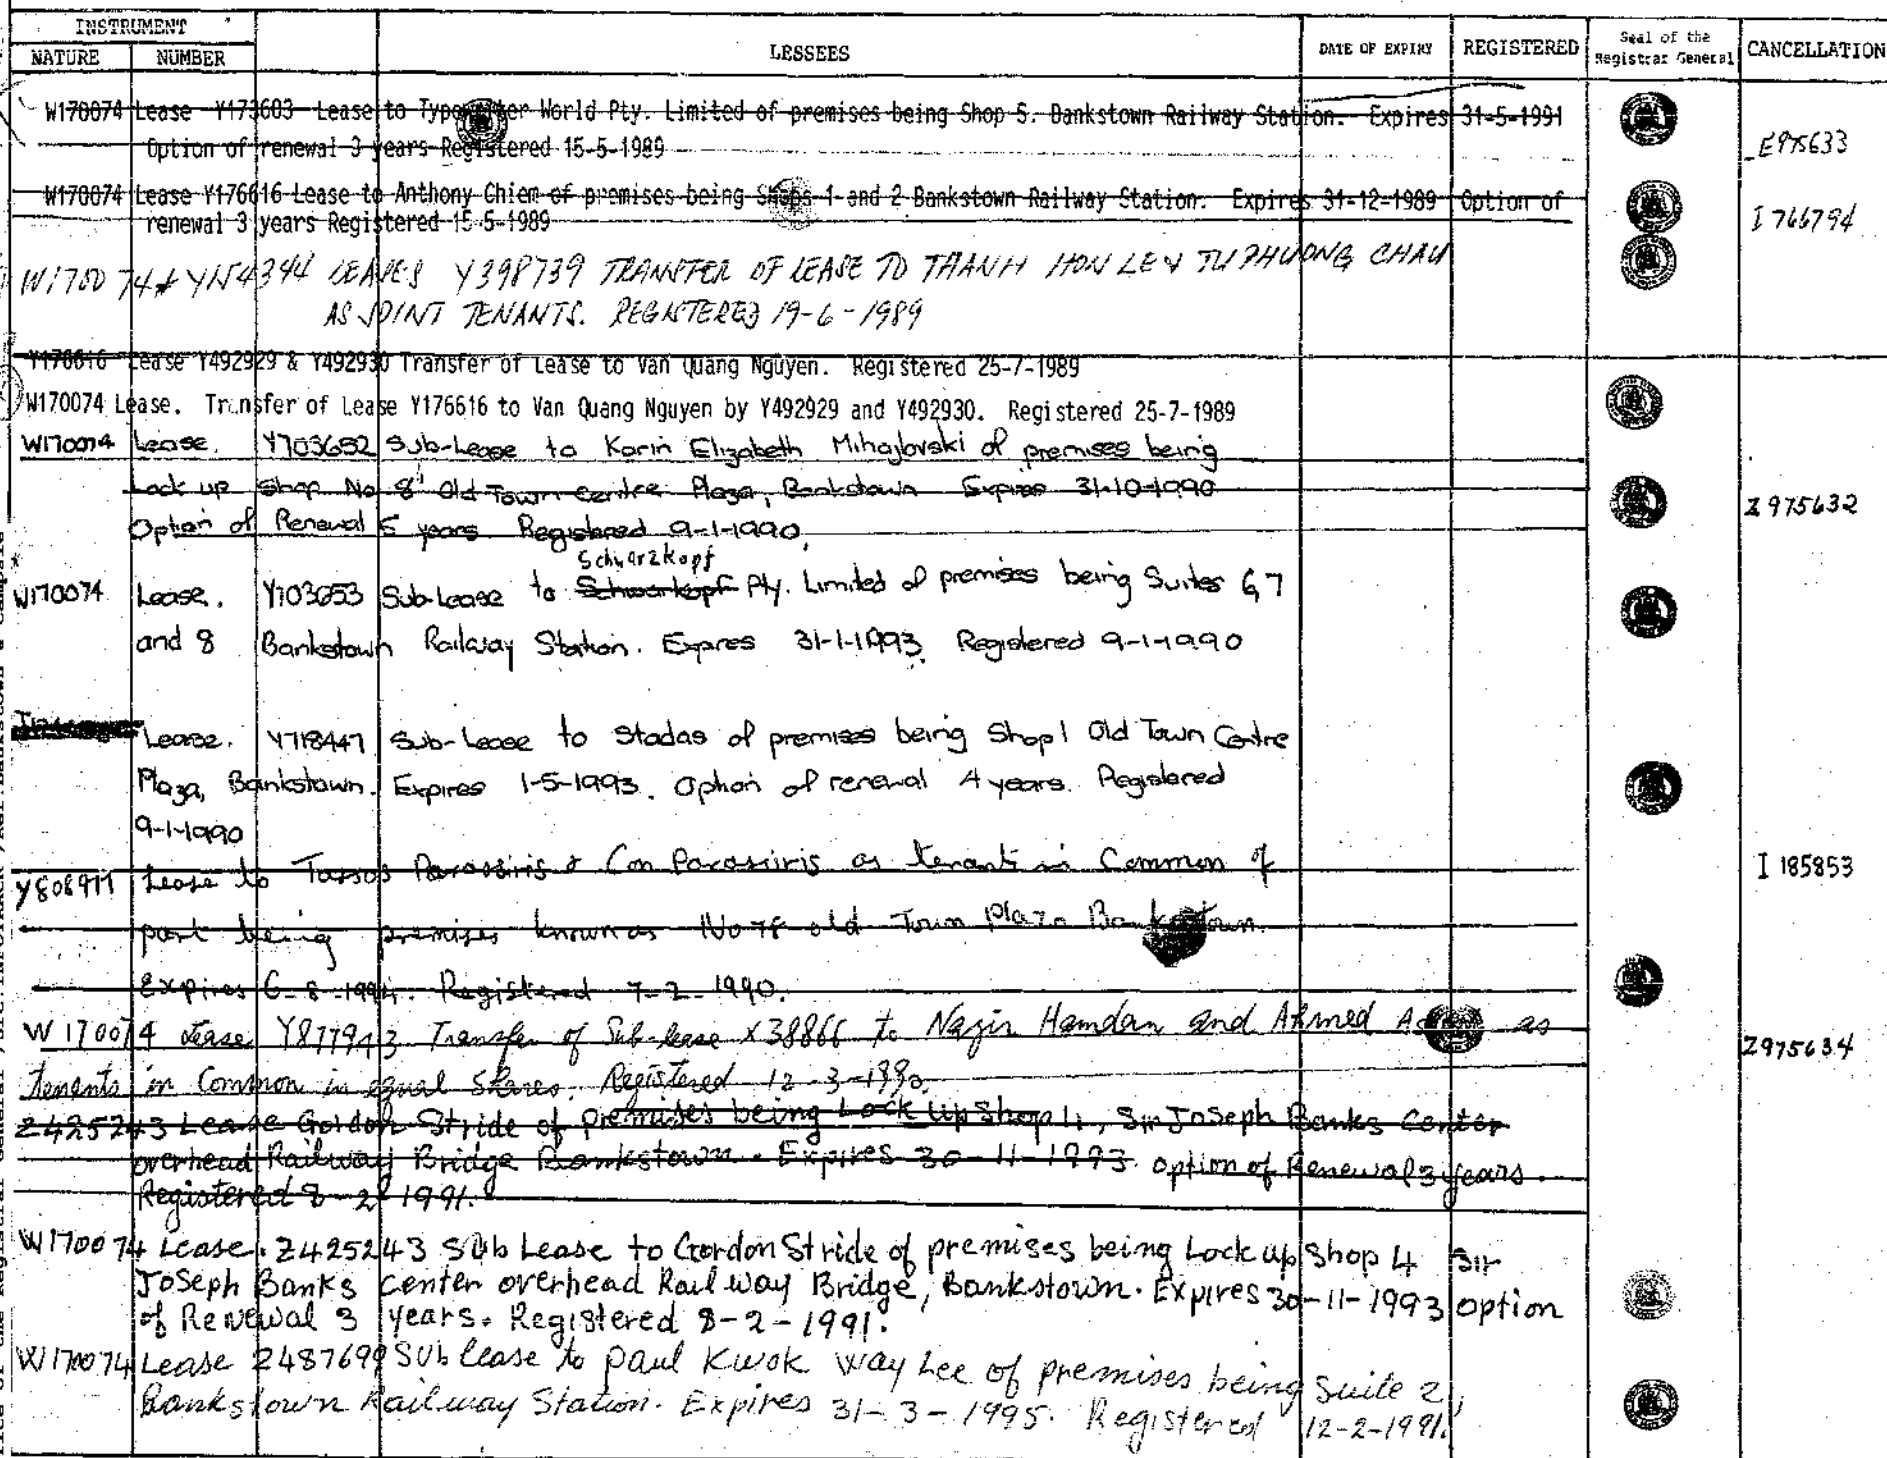 INSTRUMENT
NATURE NUMBER LESSEES DATE OF EXPIRY REGISTERED Seal of the Registrar General CANCELLATION
W170074 Lease Y173603 Lease to Typewriter World Pty. Limited of premises being Shop 5. Bankstown Railway Station. Expires 31-5-1991
Option of renewal 3 years Registered 15-5-1989 E975633
W170074 Lease Y176616 Lease to Anthony Chiem of premises being Shops 1 and 2 Bankstown Railway Station. Expires 31-12-1989 Option of
renewal 3 years Registered 15-5-1989 I 766794
W170074 Y154344 LEASES Y398739 TRANSFER OF LEASE TO THANH HON LE & TU PHUONG CHAU
AS JOINT TENANTS. REGISTERED 19-6-1989
Y176616 Lease Y492929 & Y492930 Transfer of Lease to Van Quang Nguyen. Registered 25-7-1989
W170074 Lease. Transfer of Lease Y176616 to Van Quang Nguyen by Y492929 and Y492930. Registered 25-7-1989
W170074 Lease. Y703652 Sub-Lease to Karin Elizabeth Mihajlovski of premises being
Lock up Shop No 8 Old Town Centre Plaza, Bankstown Expires 31-10-1990
Option of Renewal 5 years Registered 9-1-1990. Z975632
Schwarzkopf
W170074 Lease. Y703653 Sub-Lease to Schwarkopf Pty. Limited of premises being Suites 6,7
and 8 Bankstown Railway Station. Expires 31-1-1993. Registered 9-1-1990
Lease. Y718447 Sub-Lease to Stadas of premises being Shop 1 Old Town Centre
Plaza, Bankstown. Expires 1-5-1993. Option of renewal 4 years. Registered
9-1-1990
Y808977 Lease to Tassos Parassiris & Con Parassiris as tenants in Common of I 185853
part being premises known as No 78 old Town Plaza Bankstown.
Expires 6-8-1994. Registered 7-2-1990.
W170074 Lease Y877943 Transfer of Sub-lease X38866 to Nazir Hamdan and Ahmed as
tenents in Common in equal Shares. Registered 12-3-1990. Z975634
Z425243 Lease Gordon Stride of premises being Lock Up Shop 4, Sir Joseph Banks Center
overhead Railway Bridge Bankstown. Expires 30-11-1993. option of Renewal 3 years.
Registered 8-2-1991.
W170074 Lease. Z425243 Sub Lease to Gordon Stride of premises being Lock up Shop 4 Sir
Joseph Banks Center overhead Railway Bridge, Bankstown. Expires 30-11-1993 option
of Renewal 3 years. Registered 8-2-1991.
W170074 Lease Z487699 Sub lease to Paul Kwok Way Lee of premises being Suite 2,
Bankstown Railway Station. Expires 31-3-1995. Registered 12-2-1991.